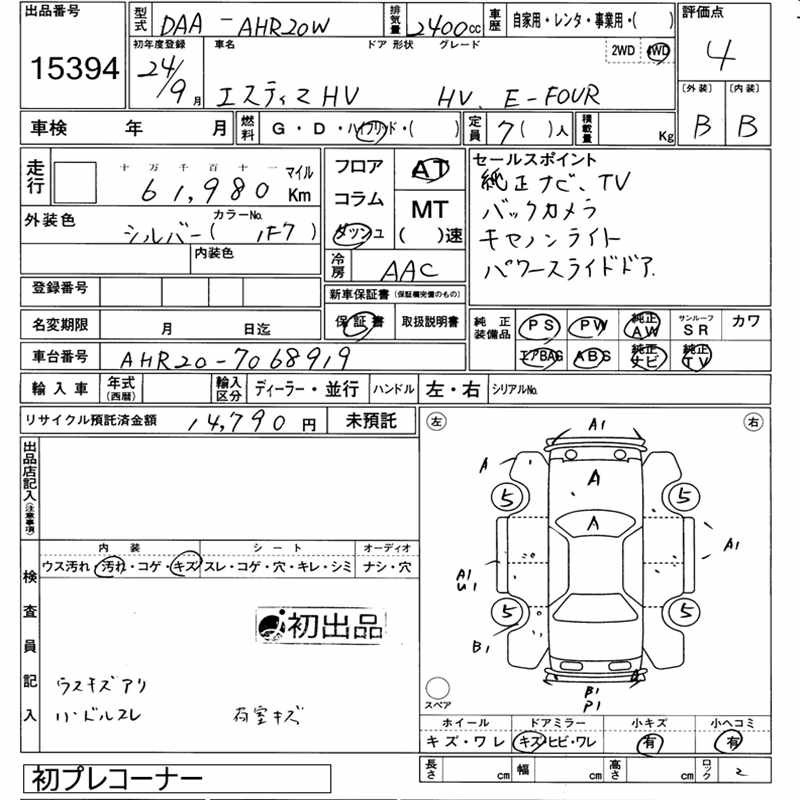 出品番号
15394
型式 DAA-AHR20W
排気量 2400cc
車歴 自家用・レンタ・事業用・( )
評価点
4
初年度登録 車名 ドア 形状 グレード
24/9月 エスティマHV HV. E-FOUR
2WD 4WD
〔外装〕 〔内装〕
B B
車検 年 月
燃料 G・D・ハイブリッド・( )
定員 7( )人
積載量 Kg
走行
十万千百十一
61,980 マイル Km
フロア
コラム
ダッシュ
AT
MT
( )速
外装色
カラーNo.
シルバー( 1F7 )
内装色
冷房 AAC
セールスポイント
純正ナビ、TV
バックカメラ
キセノンライト
パワースライドドア.
登録番号
新車保証書(保証欄完備のもの)
名変期限 月 日迄
保証書 取扱説明書
純正装備品
PS PW 純正AW サンルーフSR カワ
エアBAG ABS 純正ナビ 純正TV
車台番号 AHR20-7068919
輸入車 年式(西暦) 輸入区分 ディーラー・並行 ハンドル 左・右 シリアルNo.
リサイクル預託済金額 14,790円 未預託
出品店記入(注意事項)
左 右
A1
A
A
A
5 5
A1
A1
U1
5 5
B1
B1
P1
スペア
検査員記入
内装 シート オーディオ
ウス汚れ・汚れ・コゲ・キズ スレ・コゲ・穴・キレ・シミ ナシ・穴
初出品
ウスキズアリ
ハンドルスレ 荷室キズ
ホイール ドアミラー 小キズ 小ヘコミ
キズ・ワレ キズ・ヒビ・ワレ 有 有
長さ cm 幅 cm 高さ cm ロック 2
初プレコーナー